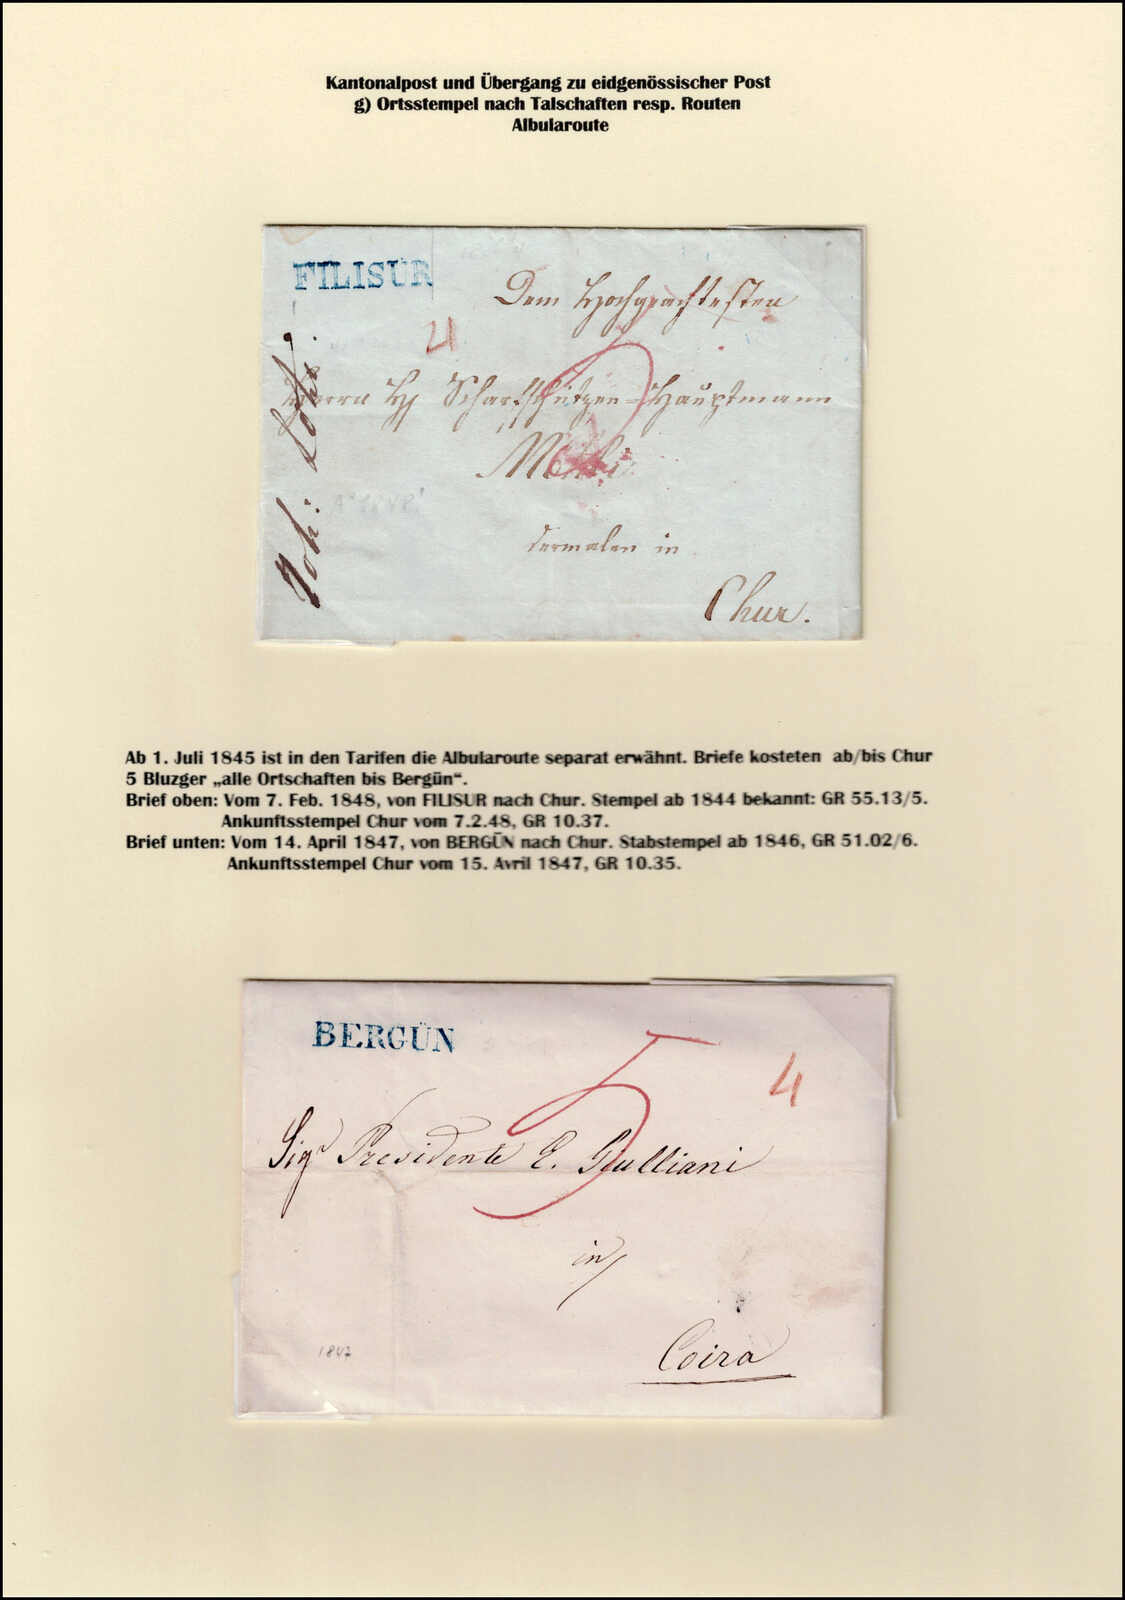 Kantonalpost und Übergang zu eidgenössischer Post
g) Ortsstempel nach Talschaften resp. Routen
Albularoute
FILISUR
Dem Hochgeachtesten
4
5
Herrn Scharfschützen=Hauptmann
dermalen in
Chur.
Joh:
Ab 1. Juli 1845 ist in den Tarifen die Albularoute separat erwähnt. Briefe kosteten ab/bis Chur
5 Bluzger „alle Ortschaften bis Bergün“.
Brief oben: Vom 7. Feb. 1848, von FILISUR nach Chur. Stempel ab 1844 bekannt: GR 55.13/5.
Ankunftsstempel Chur vom 7.2.48, GR 10.37.
Brief unten: Vom 14. April 1847, von BERGÜN nach Chur. Stabstempel ab 1846, GR 51.02/6.
Ankunftsstempel Chur vom 15. Avril 1847, GR 10.35.
BERGÜN
5
4
Sigr Presidente E.
in
Coira
1847